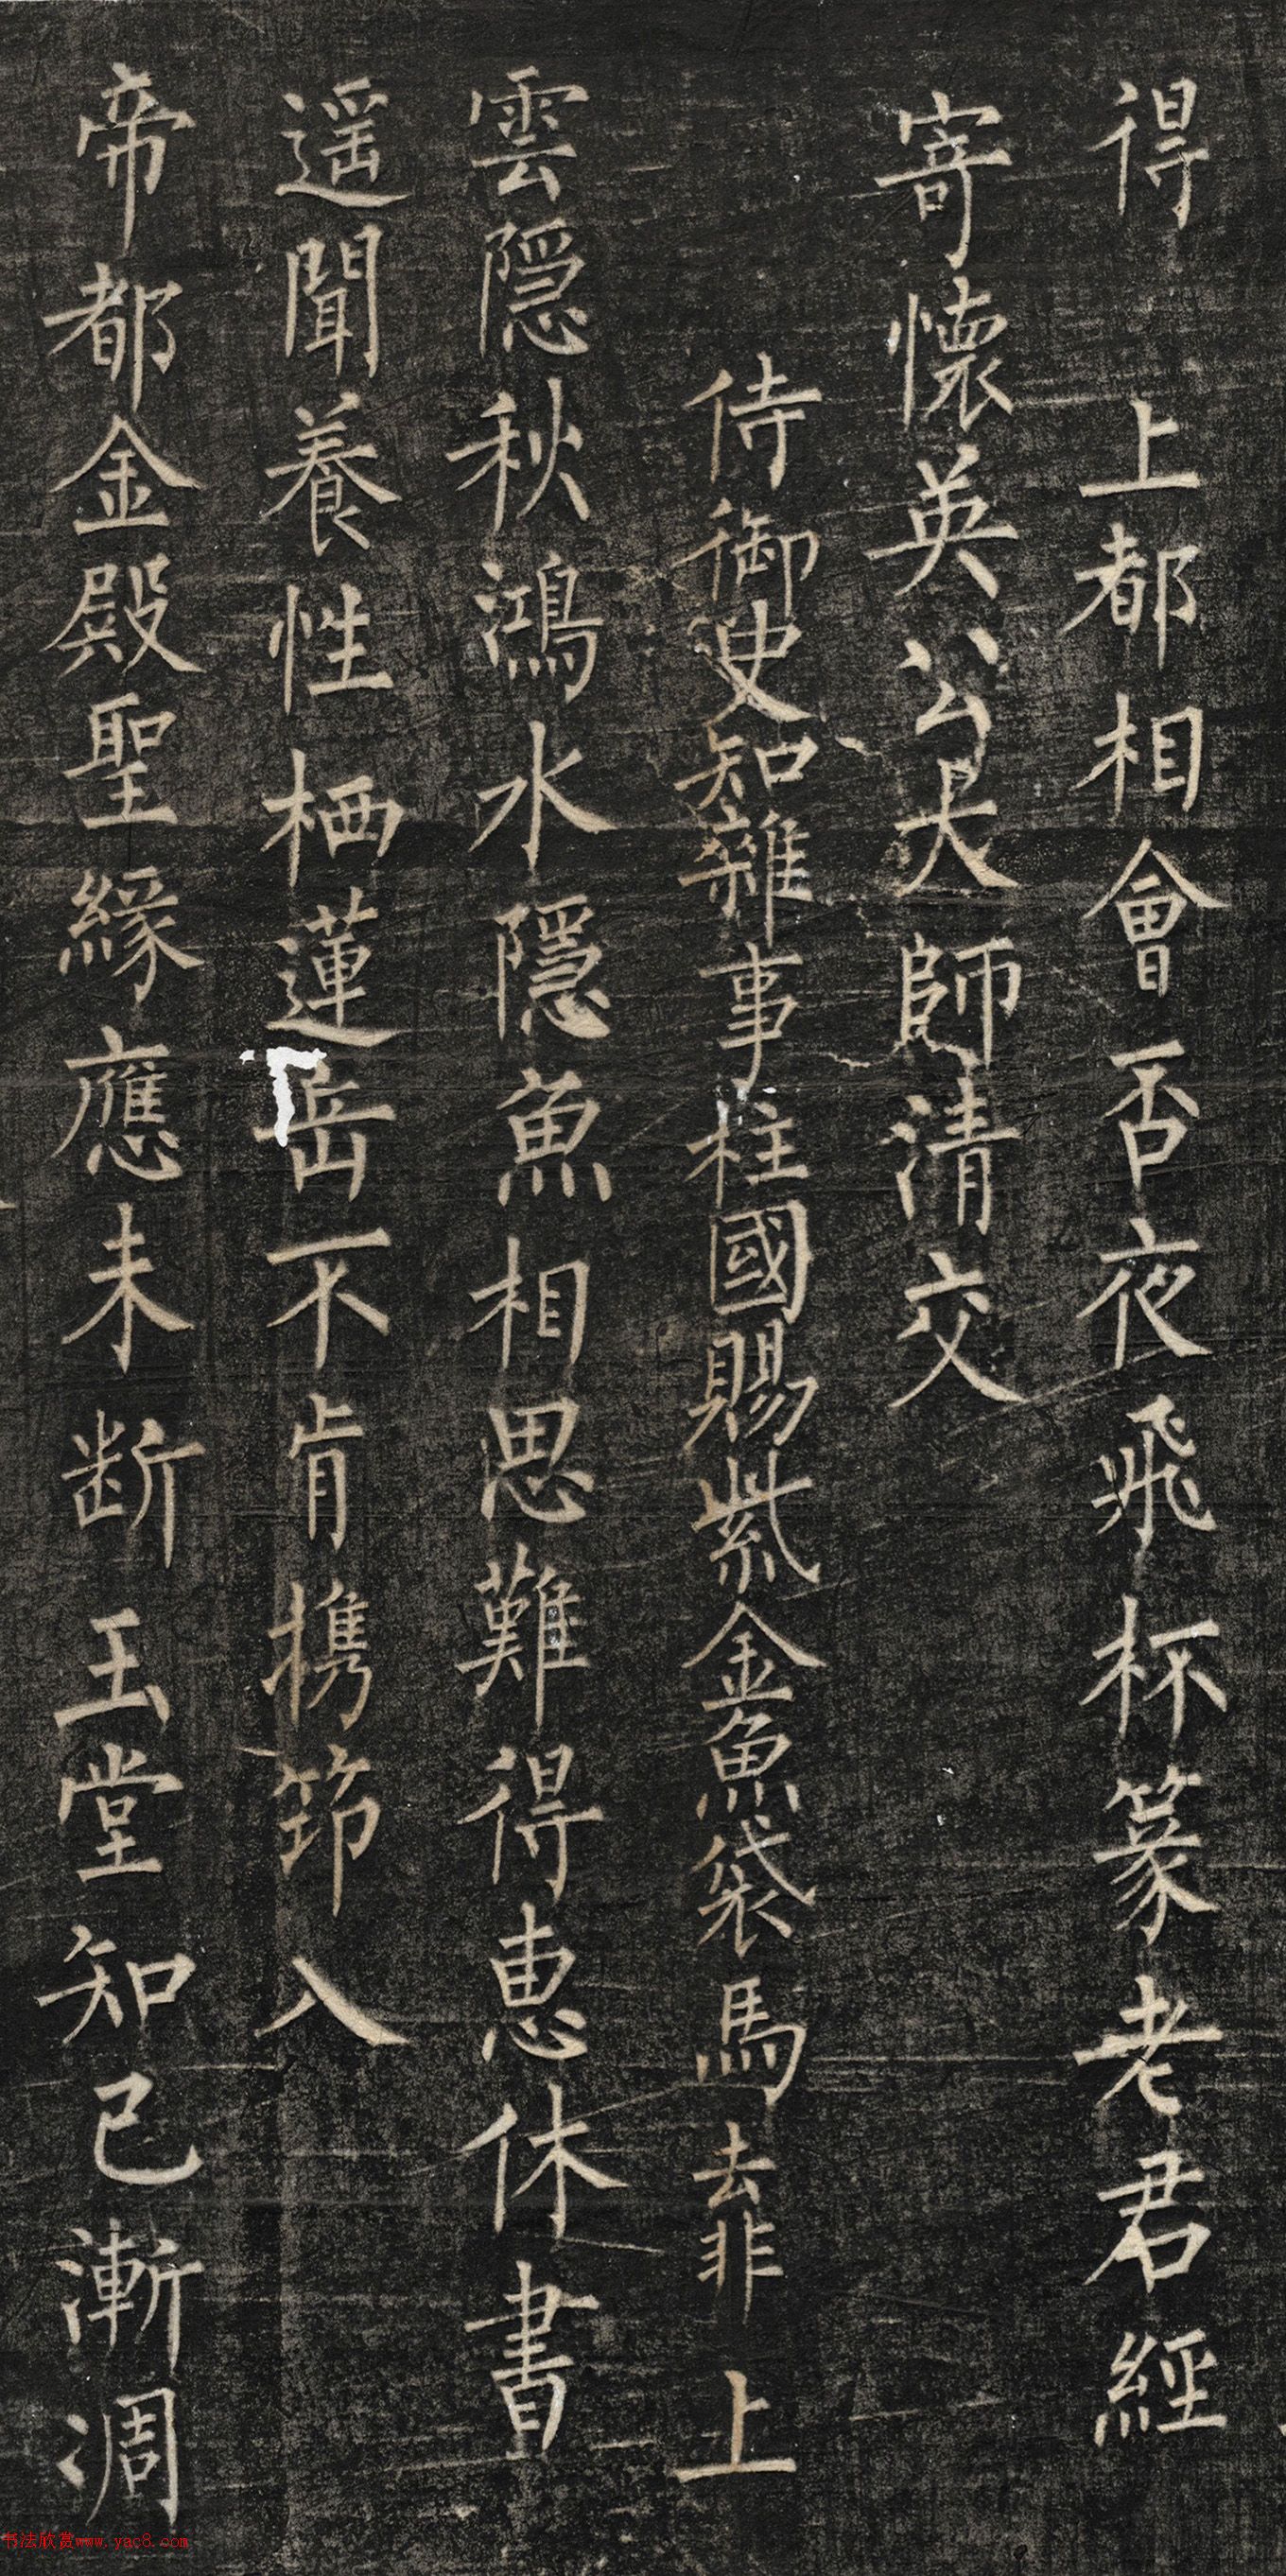 得 上都相會否夜飛杯篆老君經
寄懷英公大師清交
侍御史知雜事柱國賜紫金魚袋馬去非上
雲隠秋鴻水隱魚相思難得惠休書
遥聞養性栖蓮岳不肯携笻入
帝都金殿聖緣應未断玉堂知己漸凋
书法欣赏www.yac8.com